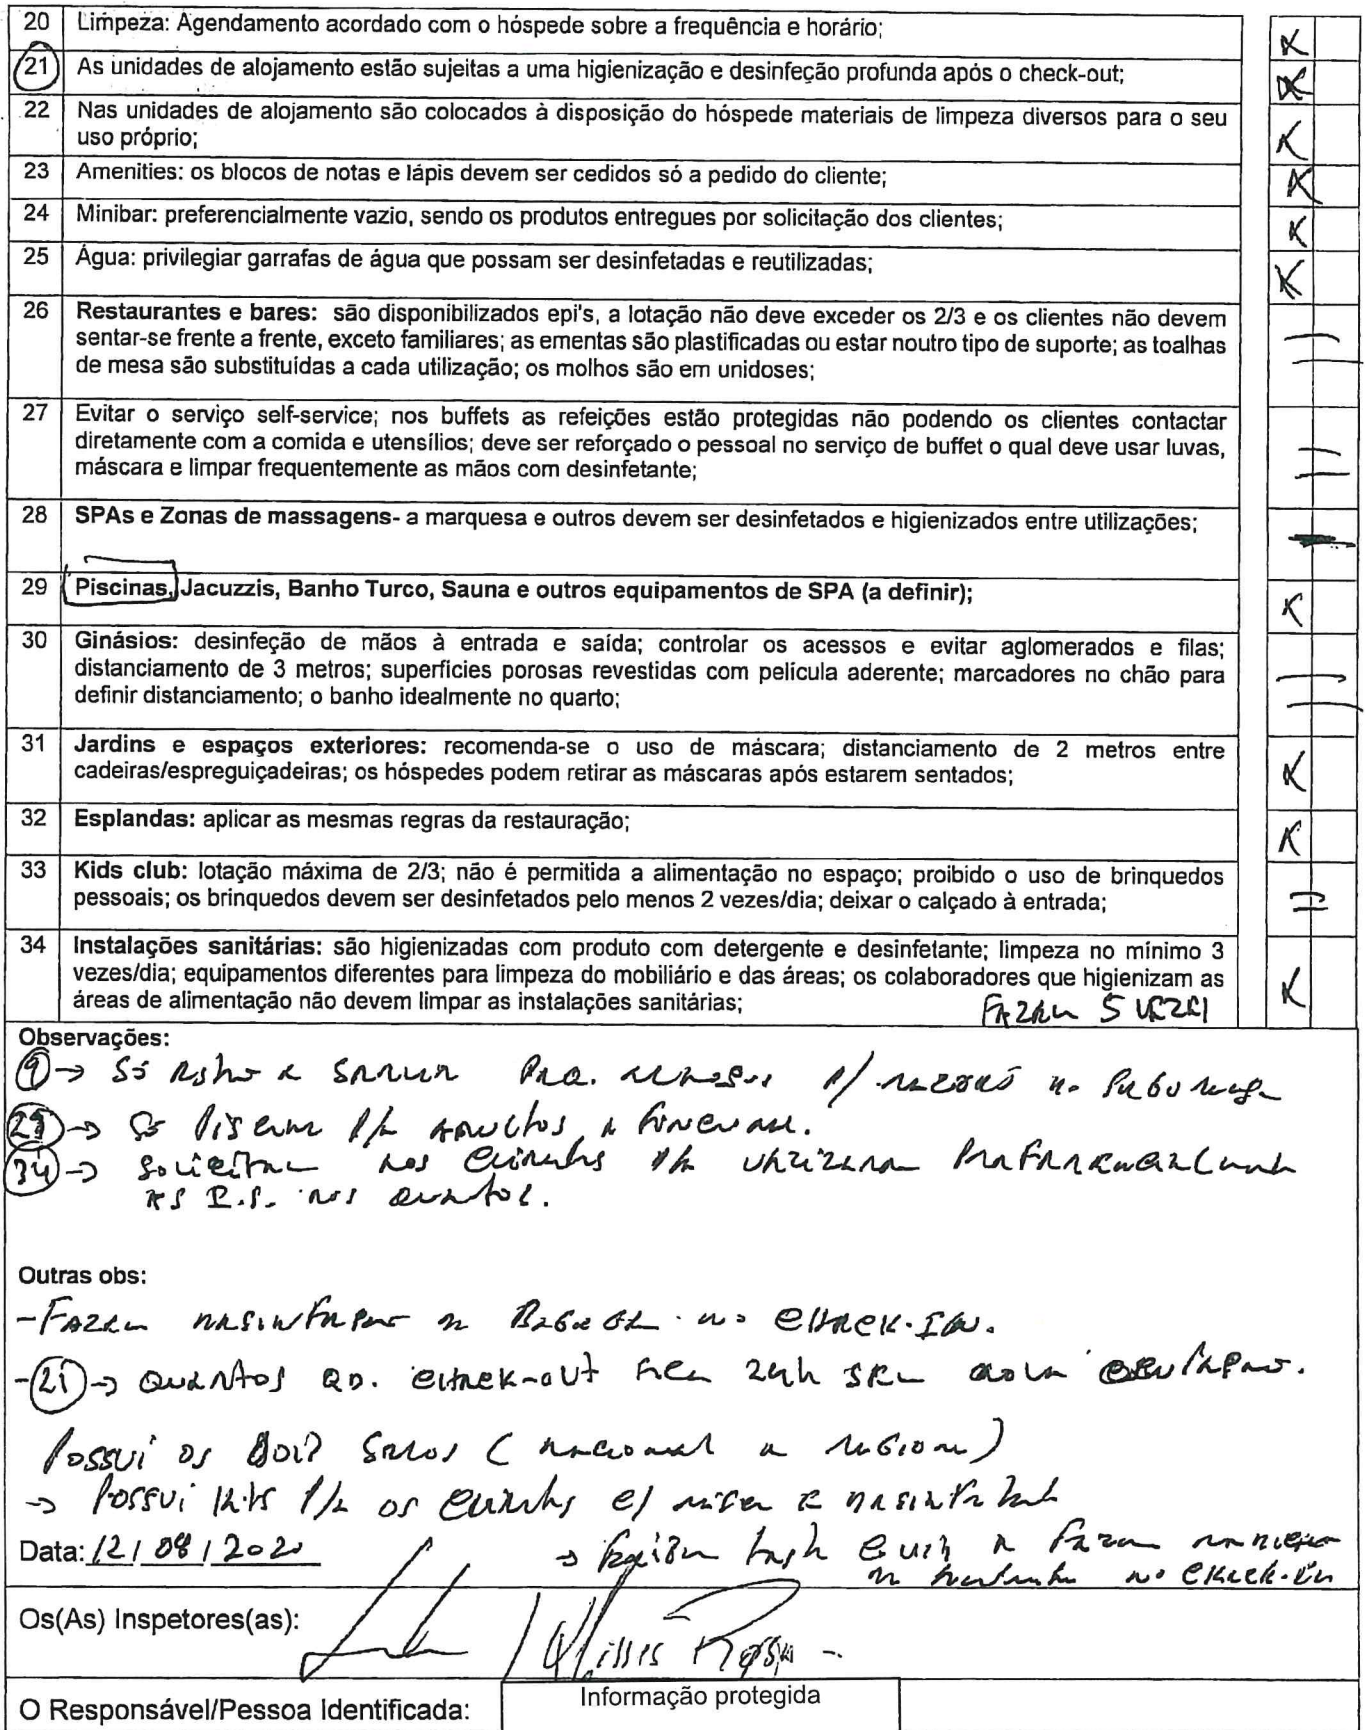 20 Limpeza: Agendamento acordado com o hóspede sobre a frequência e horário;
21 As unidades de alojamento estão sujeitas a uma higienização e desinfeção profunda após o check-out;
22 Nas unidades de alojamento são colocados à disposição do hóspede materiais de limpeza diversos para o seu
uso próprio;
23 Amenities: os blocos de notas e lápis devem ser cedidos só a pedido do cliente;
24 Minibar: preferencialmente vazio, sendo os produtos entregues por solicitação dos clientes;
25 Água: privilegiar garrafas de água que possam ser desinfetadas e reutilizadas;
26 Restaurantes e bares: são disponibilizados epi's, a lotação não deve exceder os 2/3 e os clientes não devem
sentar-se frente a frente, exceto familiares; as ementas são plastificadas ou estar noutro tipo de suporte; as toalhas
de mesa são substituídas a cada utilização; os molhos são em unidoses;
27 Evitar o serviço self-service; nos buffets as refeições estão protegidas não podendo os clientes contactar
diretamente com a comida e utensílios; deve ser reforçado o pessoal no serviço de buffet o qual deve usar luvas,
máscara e limpar frequentemente as mãos com desinfetante;
28 SPAs e Zonas de massagens- a marquesa e outros devem ser desinfetados e higienizados entre utilizações;
29 Piscinas, Jacuzzis, Banho Turco, Sauna e outros equipamentos de SPA (a definir);
30 Ginásios: desinfeção de mãos à entrada e saída; controlar os acessos e evitar aglomerados e filas;
distanciamento de 3 metros; superfícies porosas revestidas com película aderente; marcadores no chão para
definir distanciamento; o banho idealmente no quarto;
31 Jardins e espaços exteriores: recomenda-se o uso de máscara; distanciamento de 2 metros entre
cadeiras/espreguiçadeiras; os hóspedes podem retirar as máscaras após estarem sentados;
32 Esplandas: aplicar as mesmas regras da restauração;
33 Kids club: lotação máxima de 2/3; não é permitida a alimentação no espaço; proibido o uso de brinquedos
pessoais; os brinquedos devem ser desinfetados pelo menos 2 vezes/dia; deixar o calçado à entrada;
34 Instalações sanitárias: são higienizadas com produto com detergente e desinfetante; limpeza no mínimo 3
vezes/dia; equipamentos diferentes para limpeza do mobiliário e das áreas; os colaboradores que higienizam as
áreas de alimentação não devem limpar as instalações sanitárias; Fazem 5 vezes
Observações:
9 → Só
29 → Só piscina p/a adultos a funcionar.
34 → Solicitam aos clientes p/a utilizarem preferencialmente
as I.S. nos quartos.
Outras obs:
- Fazem desinfeção no check-in.
- 21 → Quartos check-out 24h sem
Possui os dois selos (nacional e regional)
→ Possui kits p/a os clientes c/
Data: 12/08/2020
→ fazem
no check-in
Os(As) Inspetores(as):
O Responsável/Pessoa Identificada:
Informação protegida